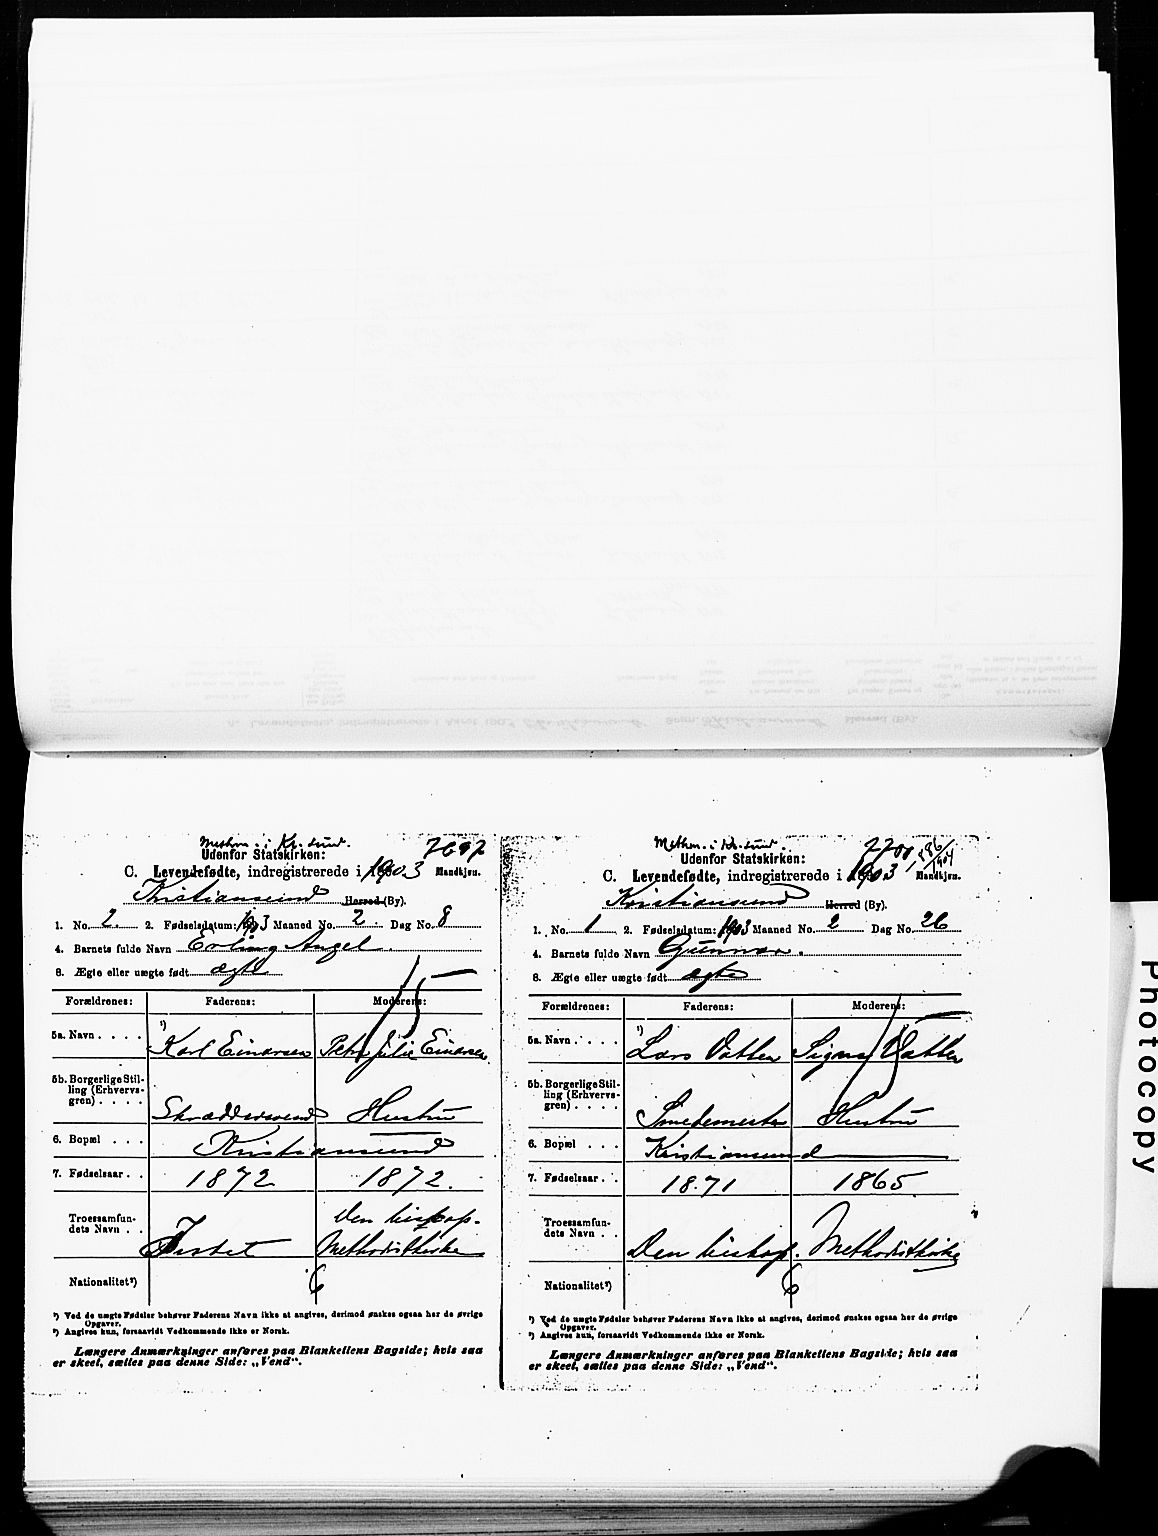 Methm. i Kr.sund.
7697
Udenfor Statskirken:
C. Levendefødte, indregistrerede i 1903 Mandkjøn.
Kristianssund Herred (By).
1. No. 2. 2. Fødselsdatum: 1903 Maaned No. 2. Dag No. 8
4. Barnets fulde Navn Erling Angel.
8. Ægte eller uægte født ægte
15
Forældrenes: Faderens: Moderens:
5a. Navn . . . . ¹) Karl Einarsen Petra Julie Einarsen.
5b. Borgerlige Stil-
ling (Erhvervs-
gren) . . . . Skræddersvend Hustru
6. Bopæl . . . Kristianssund
7. Fødselsaar . . 1872 1872.
Troessamfun-
dets Navn . . Den biskop.
Methodistkirke
Nationalitet²) 6
¹) Ved de uægte Fødsler behøver Faderens Navn ikke at angives, derimod ønskes ogsaa her de øvrige
Opgaver.
²) Angives kun, forsaavidt Vedkommende ikke er Norsk.
Længere Anmærkninger anføres paa Blankettens Bagside; hvis saa
er skeet, sættes paa denne Side: „Vend“.
Methm. i Kr.sund.
7700, 186/1904
Udenfor Statskirken:
C. Levendefødte, indregistrerede i 1903 Mandkjøn.
Kristianssund Herred (By).
1. No. 1 2. Fødselsdatum: 1903 Maaned No. 2 Dag No. 26
4. Barnets fulde Navn Gunnar.
8. Ægte eller uægte født ægte
15
Forældrenes: Faderens: Moderens:
5a. Navn . . . . ¹) Lars Vatten Signe Vatten
5b. Borgerlige Stil-
ling (Erhvervs-
gren) . . . . Smedemester Hustru
6. Bopæl . . . Kristianssund
7. Fødselsaar . . 1871 1865.
Troessamfun-
dets Navn . . Den biskop. Methodistkirke
Nationalitet²) 6
¹) Ved de uægte Fødsler behøver Faderens Navn ikke at angives, derimod ønskes ogsaa her de øvrige
Opgaver.
²) Angives kun, forsaavidt Vedkommende ikke er Norsk.
Længere Anmærkninger anføres paa Blankettens Bagside; hvis saa
er skeet, sættes paa denne Side: „Vend“.
Photocopy